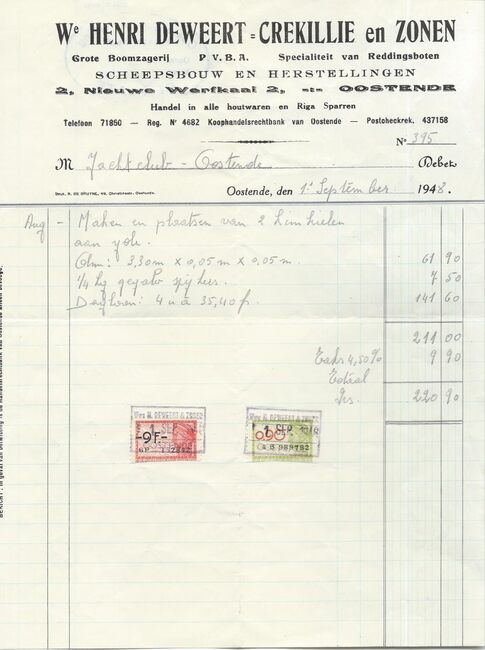 We HENRI DEWEERT-CREKILLIE en ZONEN
Grote Boomzagerij P. V. B. A. Specialiteit van Reddingsboten
SCHEEPSBOUW EN HERSTELLINGEN
2, Nieuwe Werfkaai 2, -:- OOSTENDE
Handel in alle houtwaren en Riga Sparren
Telefoon 71850 — Reg. Nr 4682 Koophandelsrechtbank van Oostende — Postcheckrek. 437158
No 395
M Jachtclub - Oostende Debet
Oostende, den 1e September 1948.
Aug - Maken en plaatsen van 2 kimkielen
aan yole.
Olm: 3,30m x 0,05m x 0,05m. 61 90
1/4 kg galv spijkers. 7 50
Dagloon: 4 u à 35,40fr. 141 60
211 00
Taks 4,50% 9 90
Totaal
frs. 220 90
Wwe H. DEWEERT & ZONEN
1 SEP
-9F-
Wwe H. DEWEERT & ZONEN
1 SEP 1948
0,90